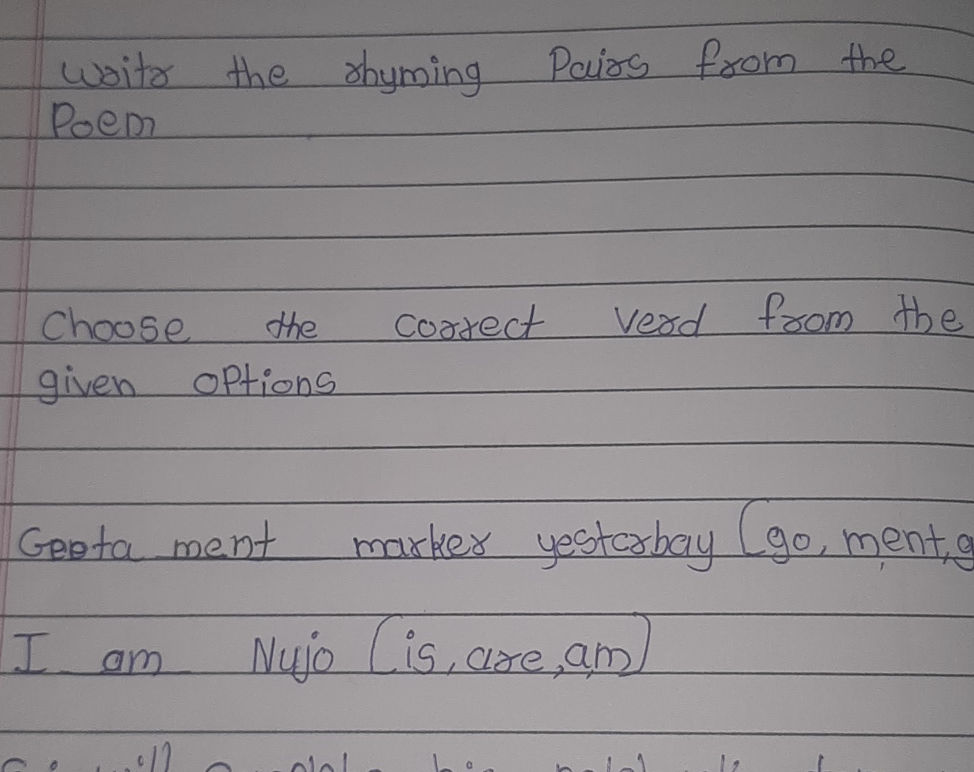 Write the rhyming Pairs from the
Poem
Choose the correct verd from the
given options
Geeta ment marker yesterbay (go, ment, g
I am Nujo (is, are, am)